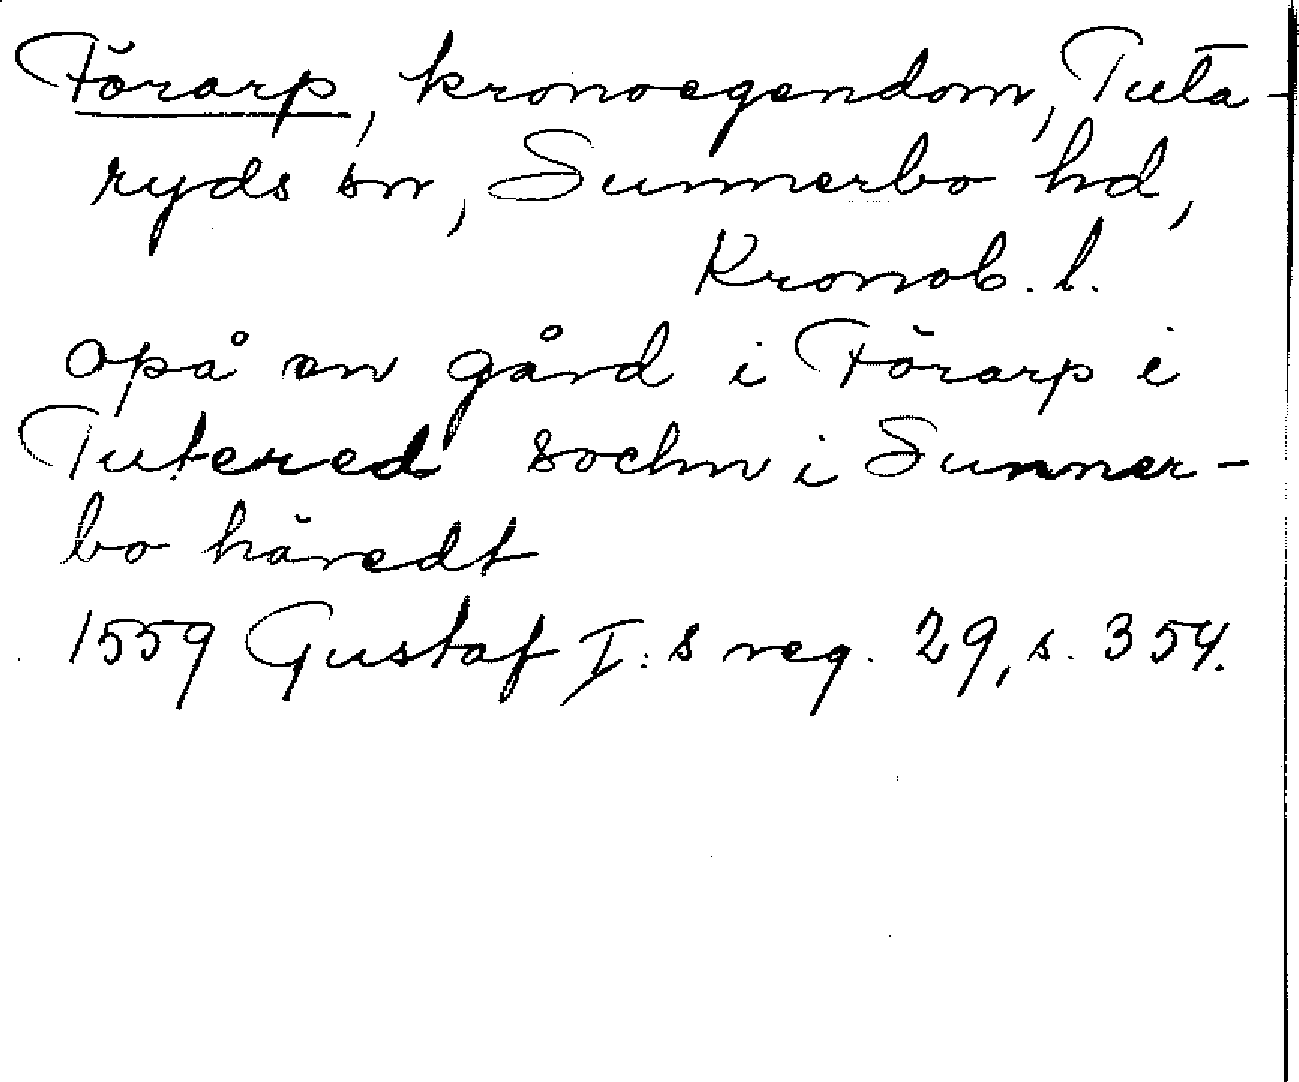 Förarp, kronoegendom, Tuta-
ryds sn, Sunnerbo hd,
Kronob. l.
opå en gård i Förarp i
Tutered sochn i Sunner-
bo häredt
1559 Gustaf I:s reg. 29, s. 354.